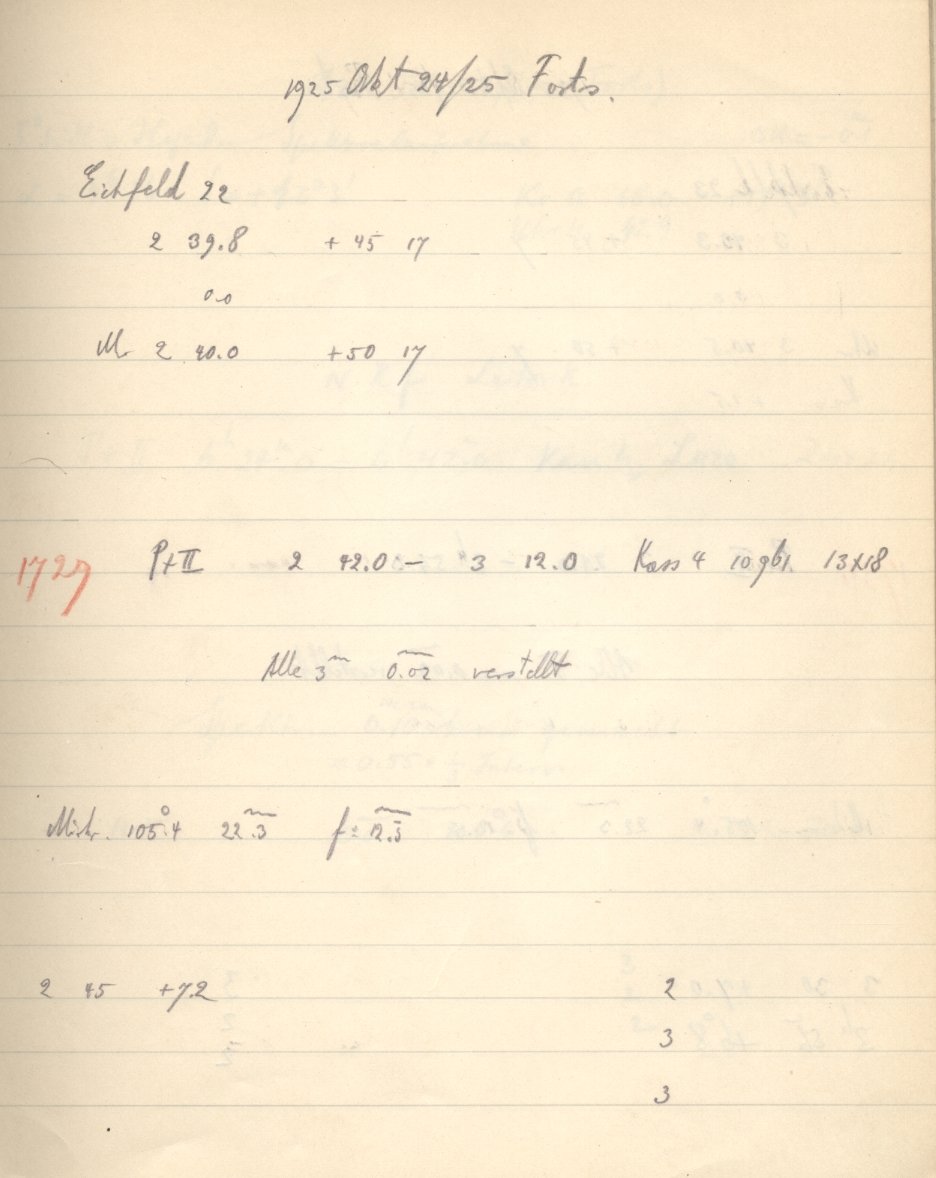 1925 Okt 24/25 Forts.
Eichfeld 22
2 39.8 +45 17
0.0
M 2 40.0 +50 17
1727 P+II 2 42.0 – 3 12.0 Kass 4 10 9b1. 13x18
Alle 3m 0.02 verstellt
Mikr. 105°.4 22.3 f = 12.3
2 45 +7.2 2
3
3